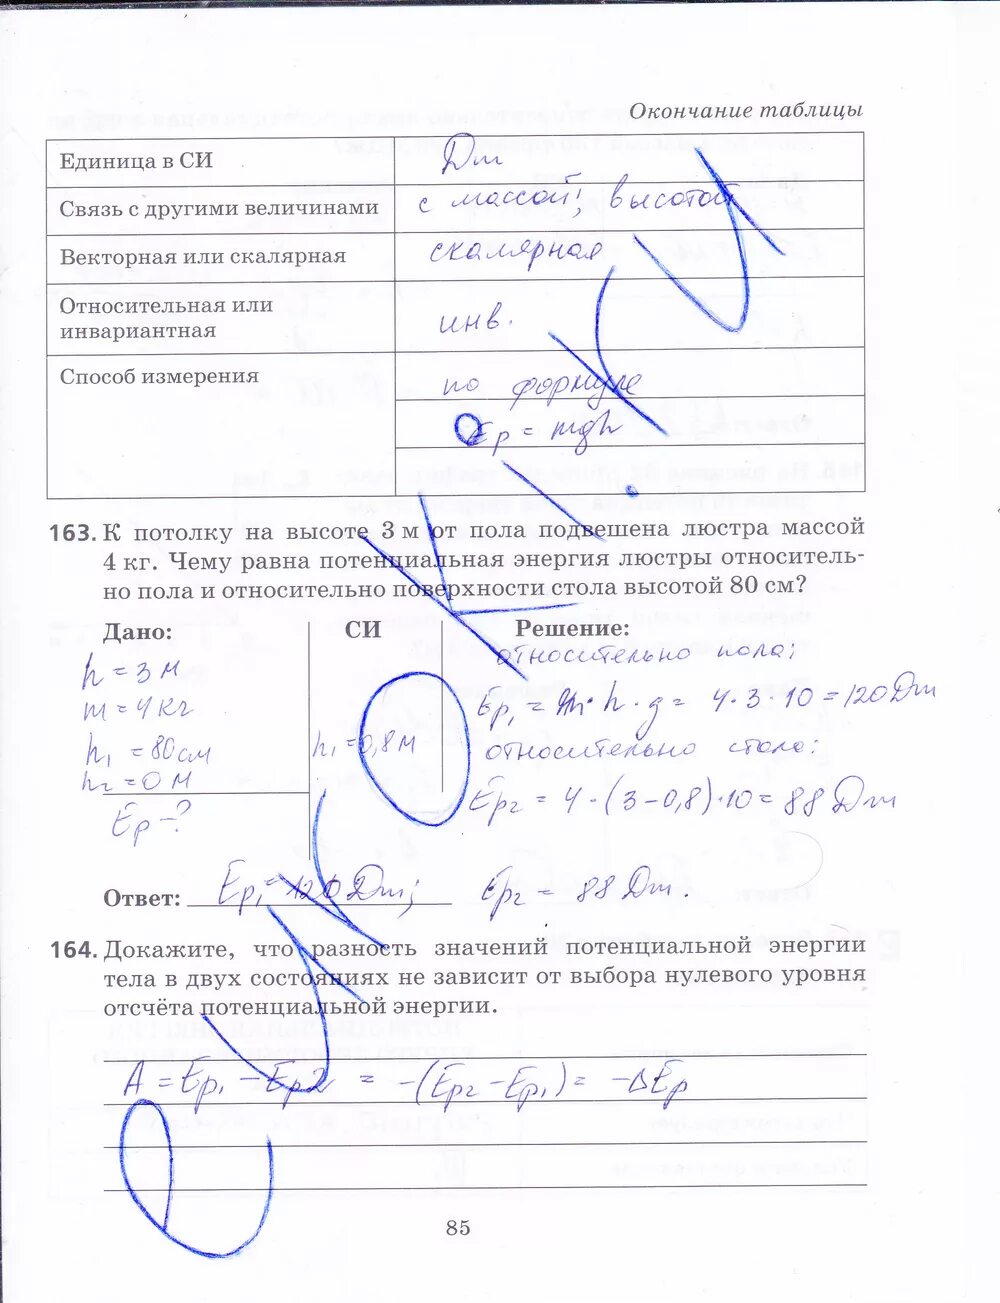 Окончание таблицы
Единица в СИ Дж
Связь с другими величинами с массой, высотой
Векторная или скалярная скалярная
Относительная или
инвариантная инв.
Способ измерения по формуле
Ep = mgh
163. К потолку на высоте 3 м от пола подвешена люстра массой
4 кг. Чему равна потенциальная энергия люстры относитель-
но пола и относительно поверхности стола высотой 80 см?
Дано: СИ Решение:
относительно пола:
h = 3 м
Ep₁ = m · h · g = 4 · 3 · 10 = 120 Дж
m = 4 кг
относительно стола:
h₁ = 80 см h₁ = 0,8 м
h₂ = 0 м
Ep₂ = 4 · (3 – 0,8) · 10 = 88 Дж
Ep – ?
Ответ: Ep₁ = 120 Дж; Ep₂ = 88 Дж.
164. Докажите, что разность значений потенциальной энергии
тела в двух состояниях не зависит от выбора нулевого уровня
отсчёта потенциальной энергии.
A = Ep₁ – Ep2 = –(Ep₂ – Ep₁) = –ΔEp
85